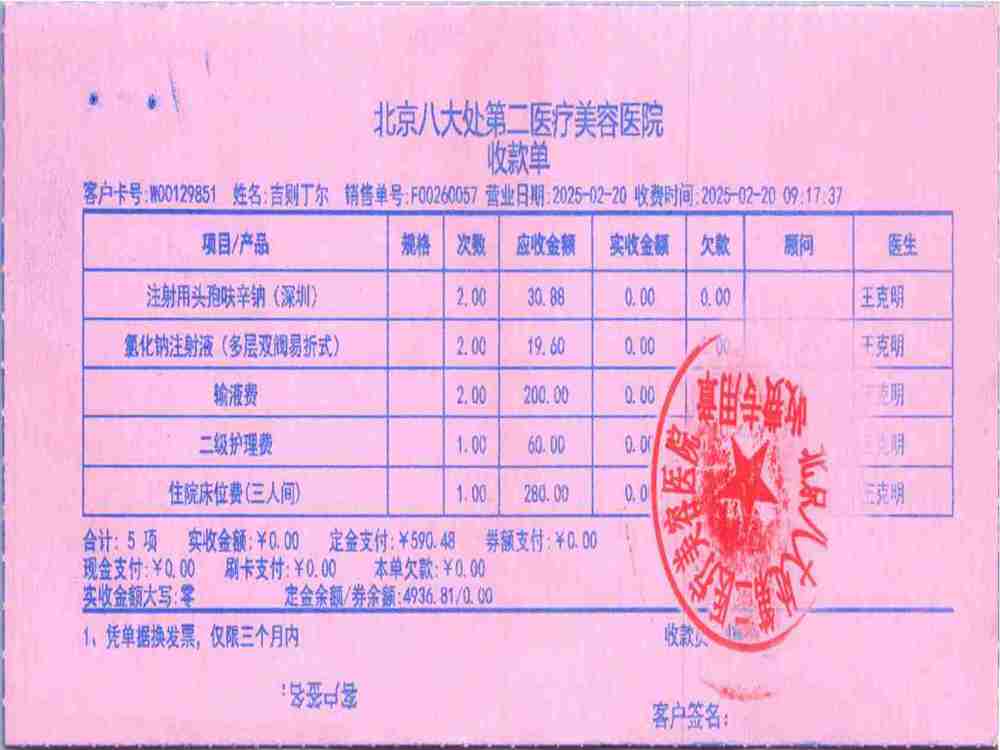 北京八大处第二医疗美容医院
收款单
客户卡号:W00129851 姓名:吉则丁尔 销售单号:F00260057 营业日期:2025-02-20 收费时间:2025-02-20 09:17:37
项目/产品 规格 次数 应收金额 实收金额 欠款 顾问 医生
注射用头孢呋辛钠（深圳） 2.00 30.88 0.00 0.00 王克明
氯化钠注射液（多层双阀易折式） 2.00 19.60 0.00 00 王克明
输液费 2.00 200.00 0.00 王克明
二级护理费 1.00 60.00 0.00 王克明
住院床位费(三人间) 1.00 280.00 0.0 王克明
合计: 5 项 实收金额:¥0.00 定金支付:¥590.48 券额支付:¥0.00
现金支付:¥0.00 刷卡支付:¥0.00 本单欠款:¥0.00
实收金额大写:零 定金余额/券余额:4936.81/0.00
1、凭单据换发票，仅限三个月内 收款员
客户签名:
客户签名:
北京八大处第二医疗美容医院
收费专用章